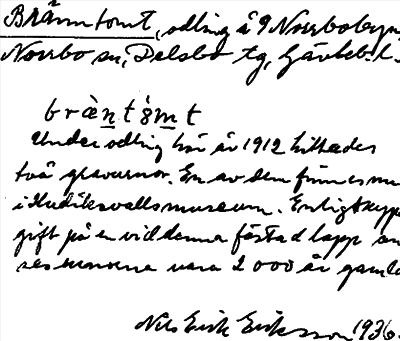 Bränntomt, odling å 9 Norrbobyn,
Norrbo sn, Delsbo tg, Gävleb. l.
bræ̀nt
Under odling här år 1912 hittades
två gravurnor. En av dem finnes nu
i Hudiksvalls museum. Enligt
gift på en vid denna fästad lapp an
ses urnorna vara 2000 år gamla
Nils Erik Eriksson 1936.